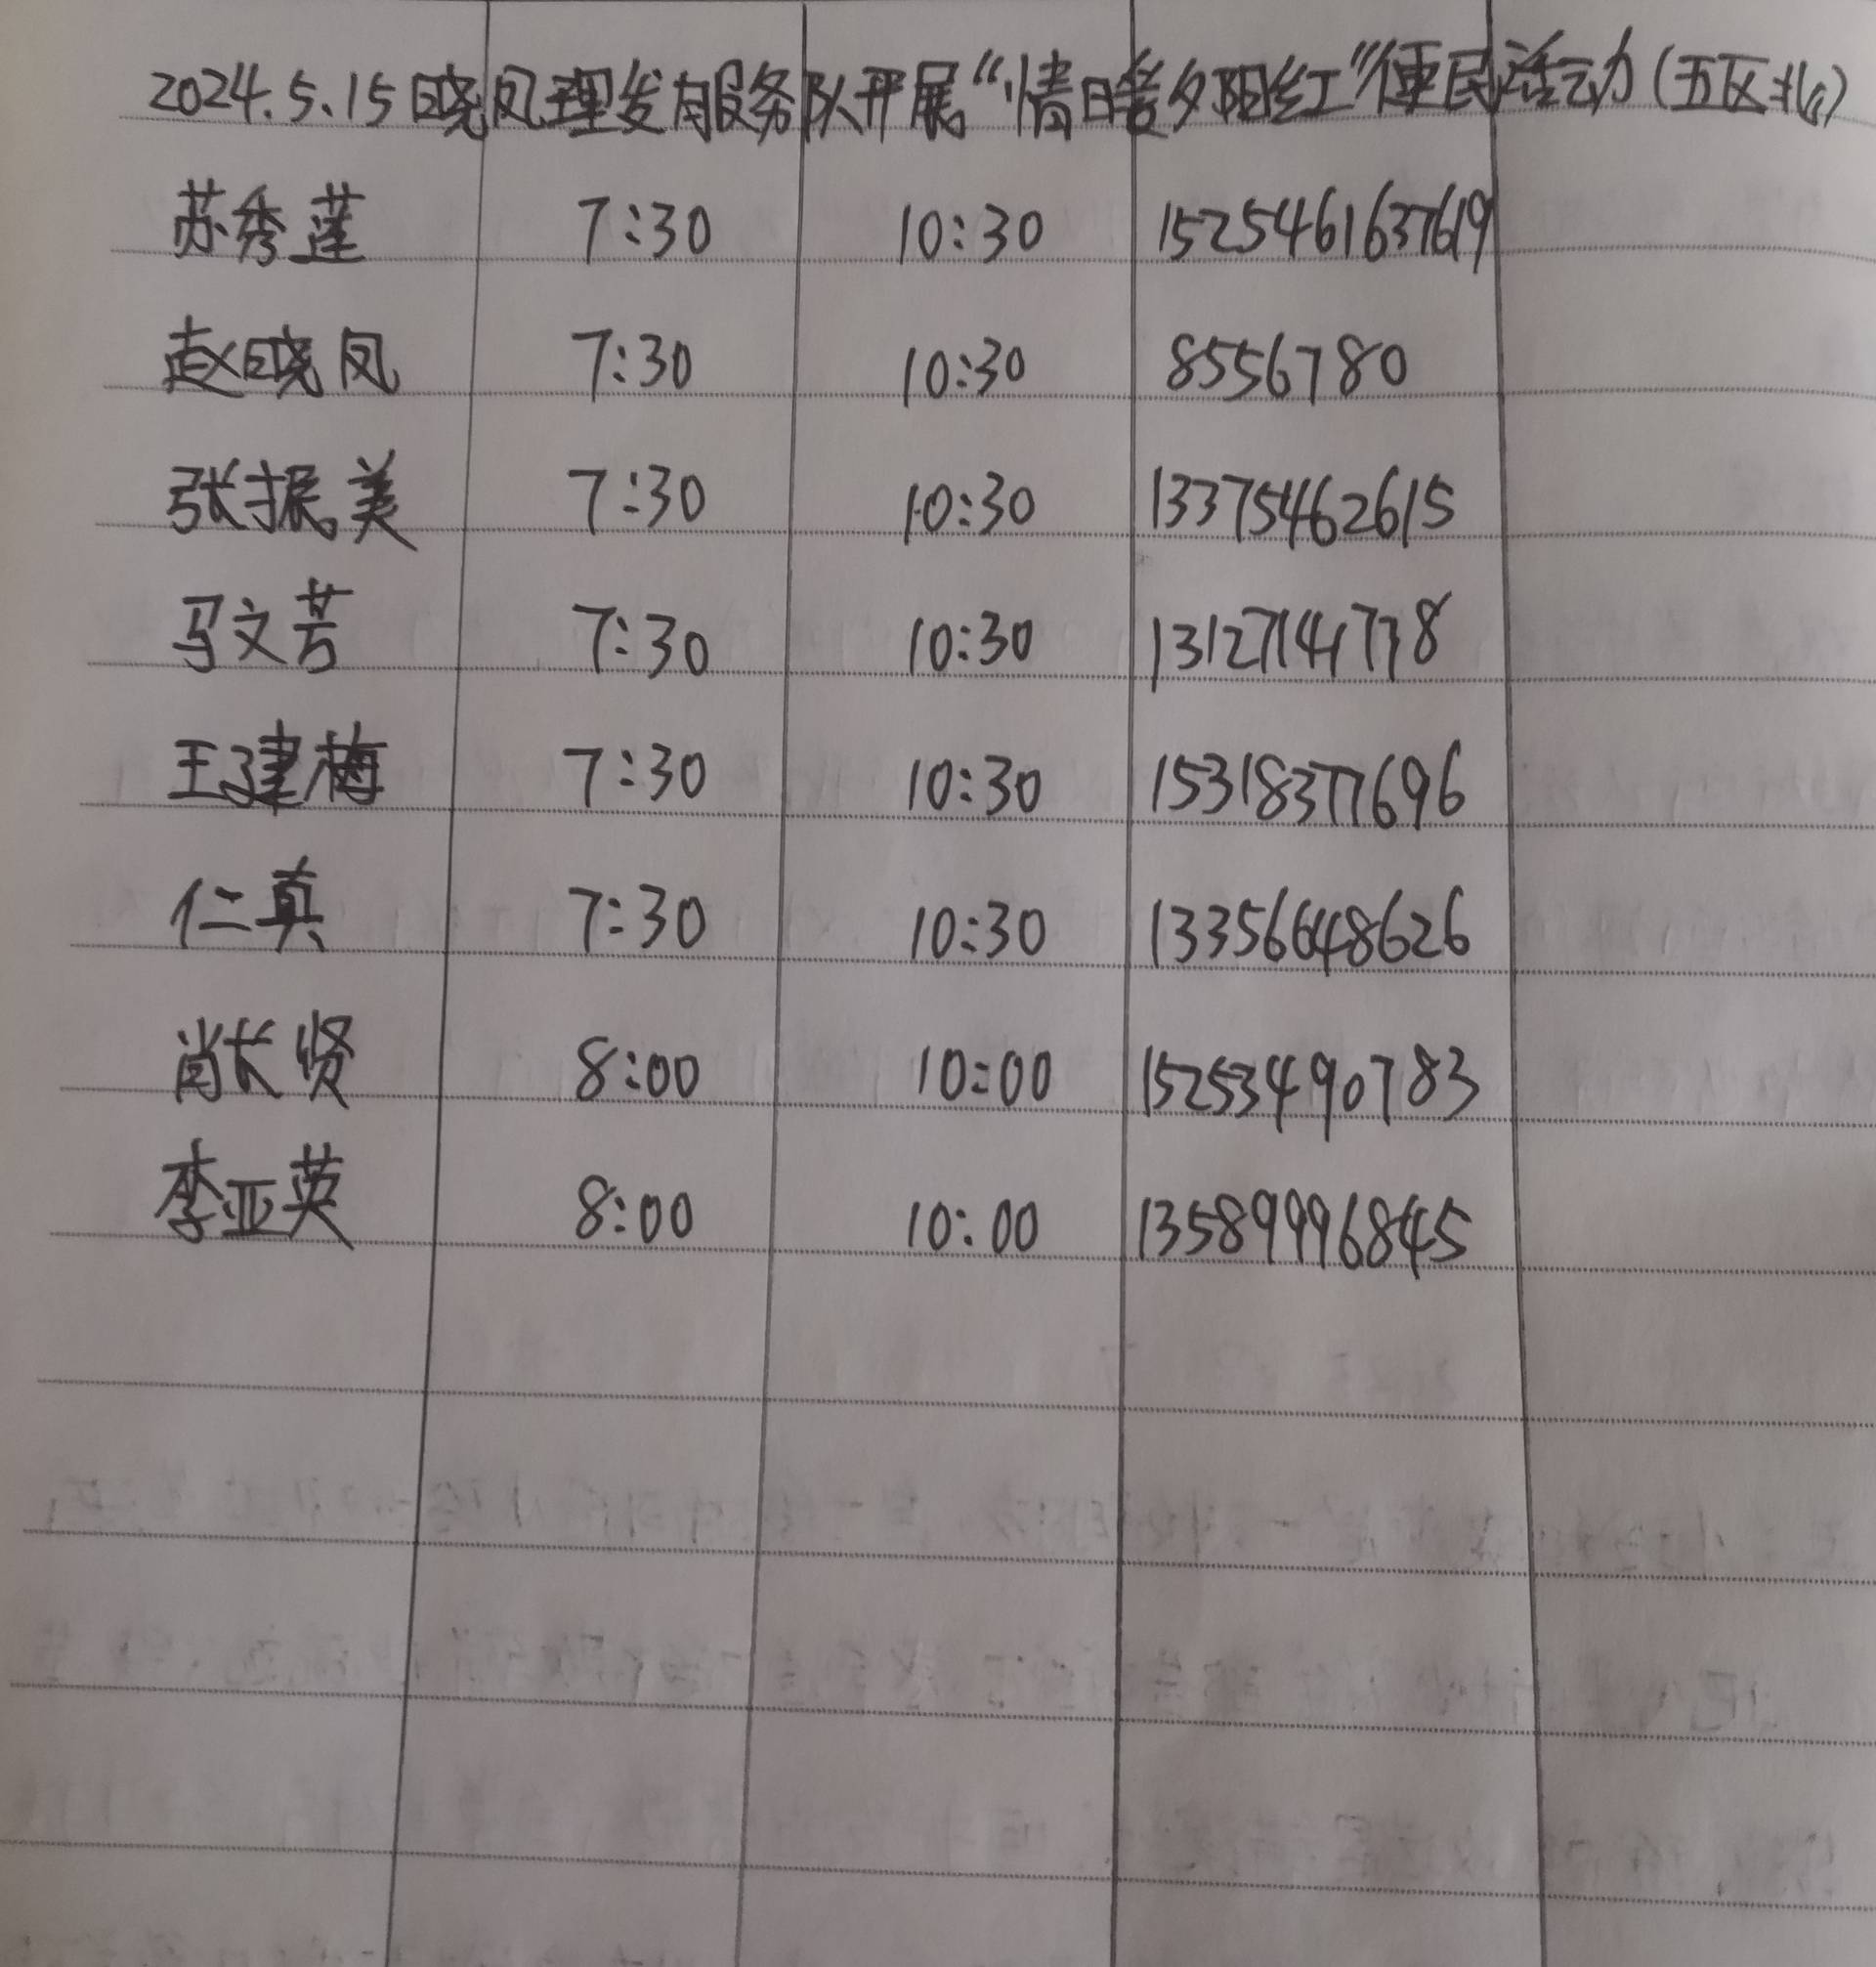 2024.5.15晓凤理发服务队开展“情暖夕阳红”便民活动(五区北)
苏秀莲 7:30 10:30 1525461637619
赵晓凤 7:30 10:30 8556780
张振美 7:30 10:30 13375462615
马文芳 7:30 10:30
王建梅 7:30 10:30 15318377696
仁真 7:30 10:30 13356648626
肖长贤 8:00 10:00 15253490783
李亚英 8:00 10:00 13589996845